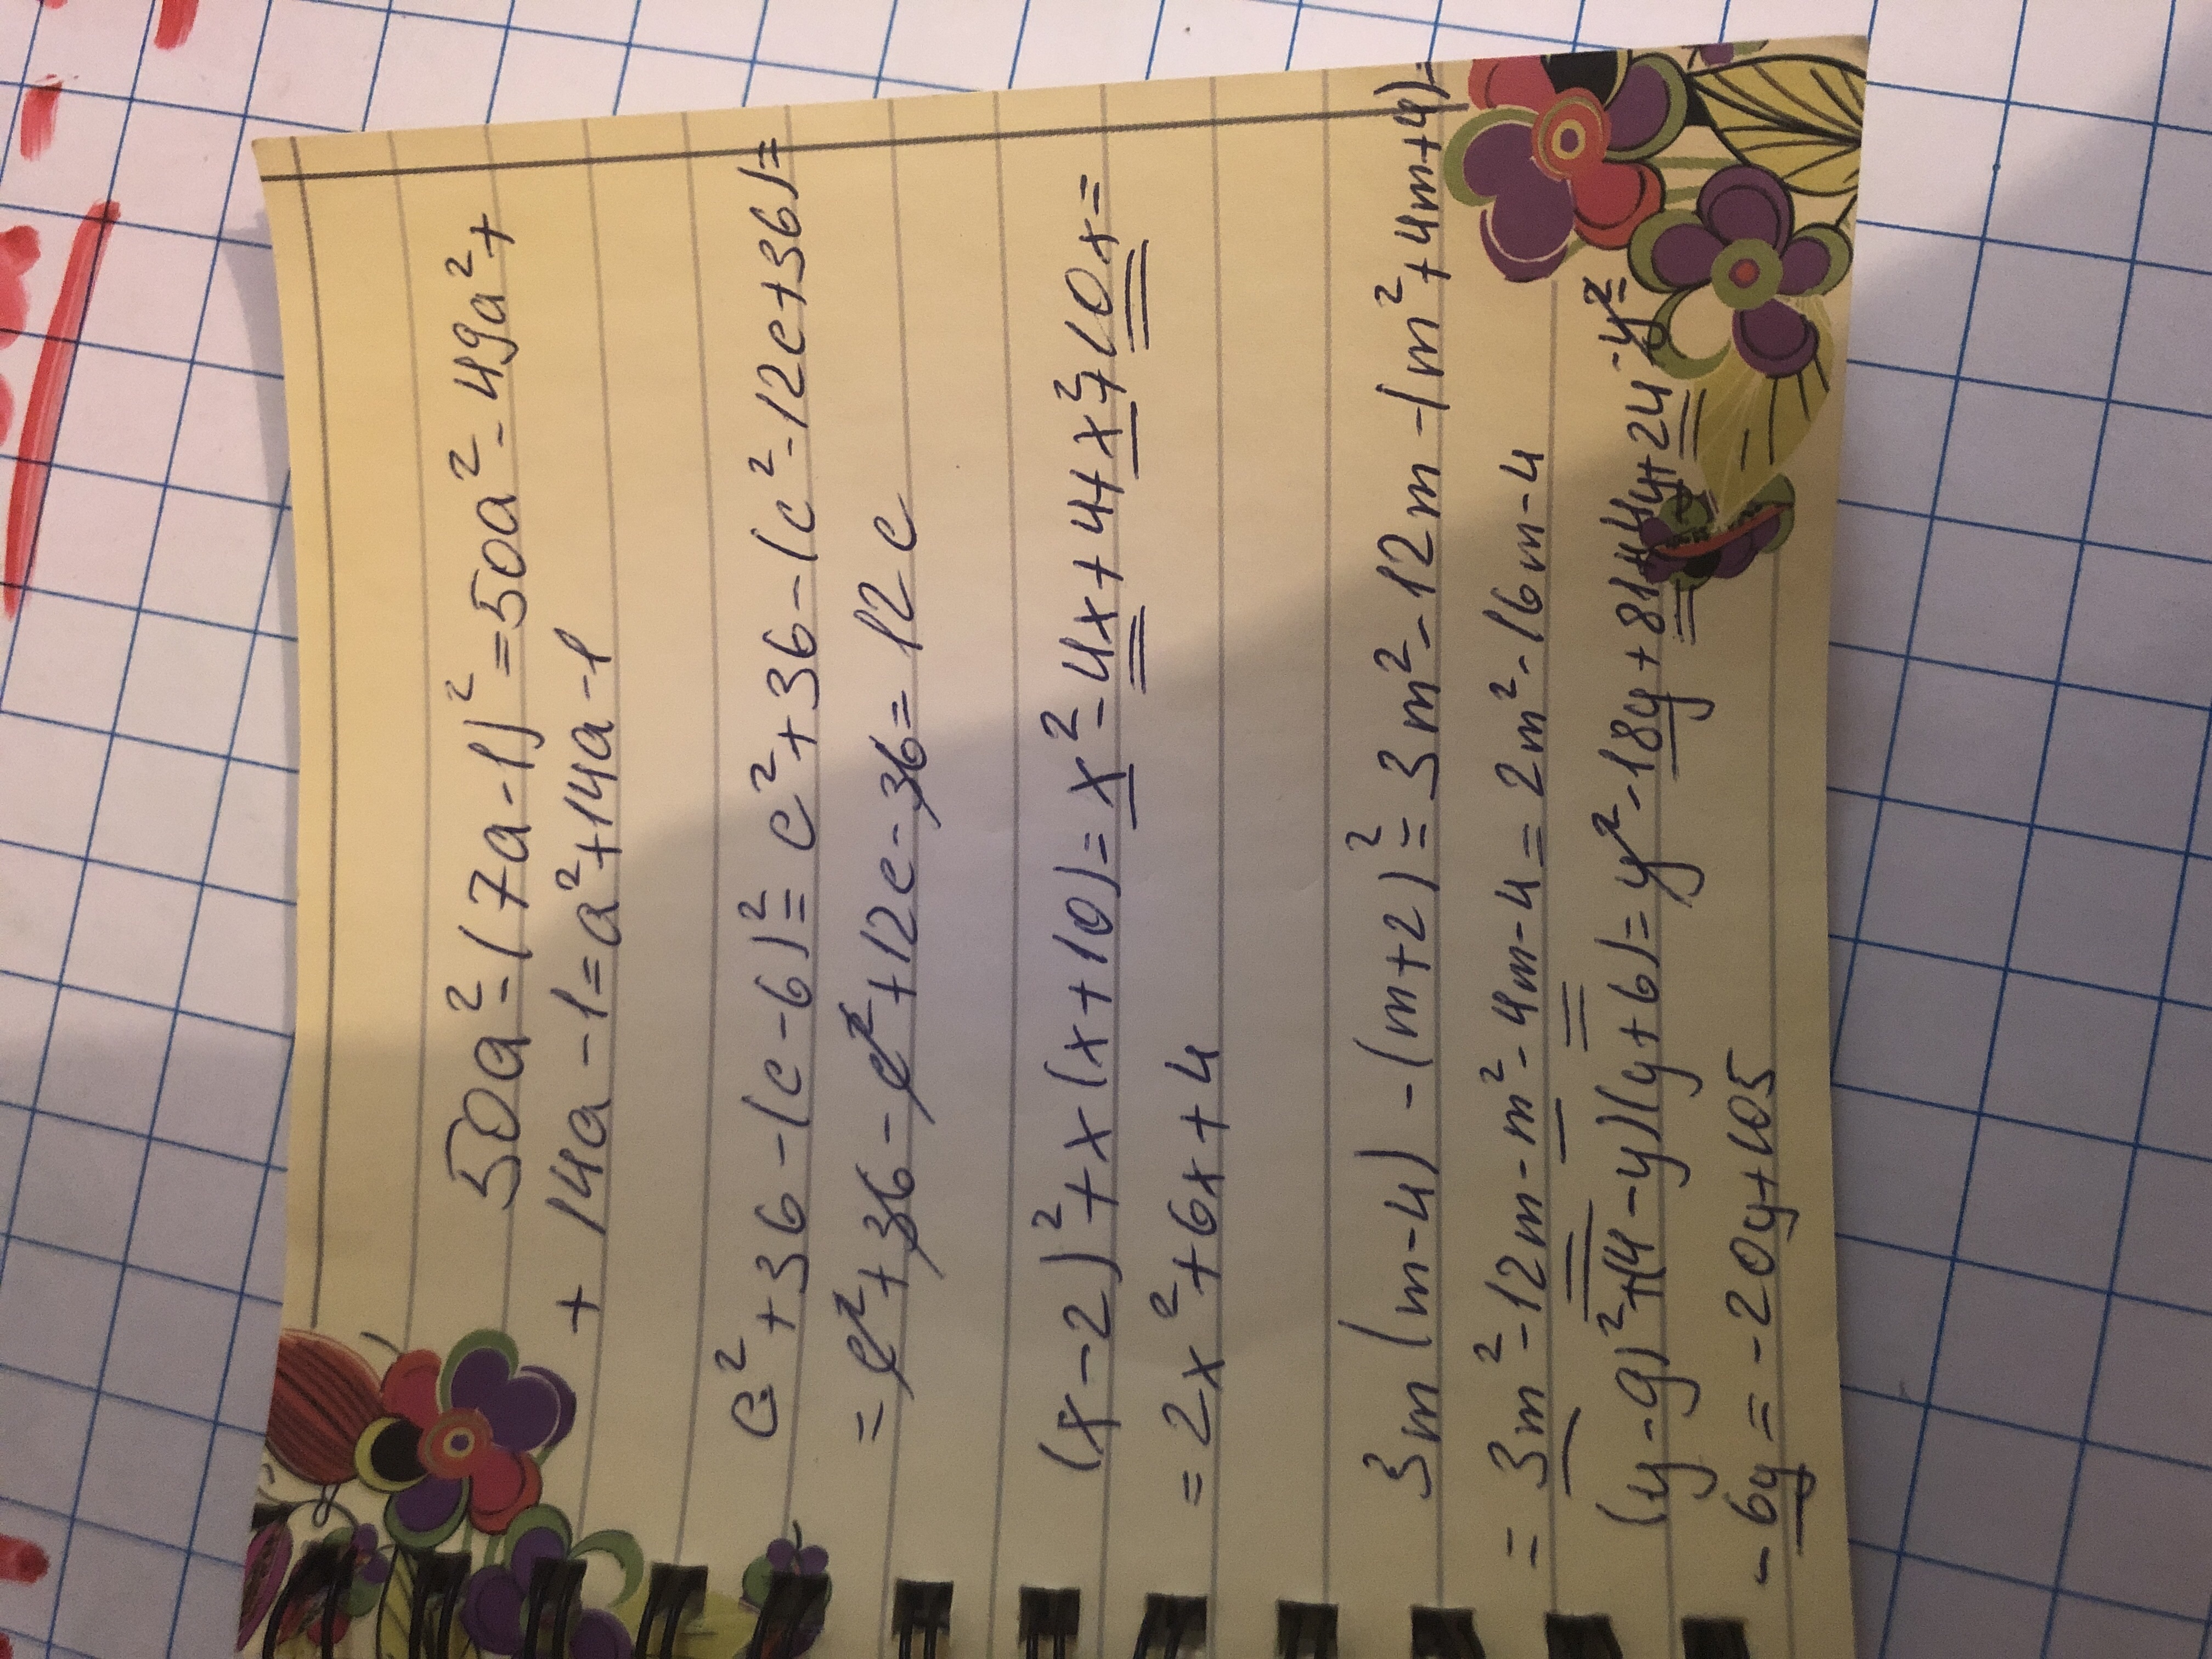 50a² - (7a - 1)² = 50a² - 49a² +
+ 14a - 1 = a² + 14a - 1
c² + 36 - (c - 6)² = c² + 36 - (c² - 12c + 36) =
= c² + 36 - c² + 12c - 36 = 12c
(x - 2)² + x(x + 10) = x² - 4x + 4 + x² + 10x =
= 2x² + 6x + 4
3m(m - 4) - (m + 2)² = 3m² - 12m - (m² + 4m + 4) =
= 3m² - 12m - m² - 4m - 4 = 2m² - 16m - 4
(y - 9)² + (4 - y)(y + 6) = y² - 18y + 81 + 4y + 24 - y² -
- 6y = - 20y + 105